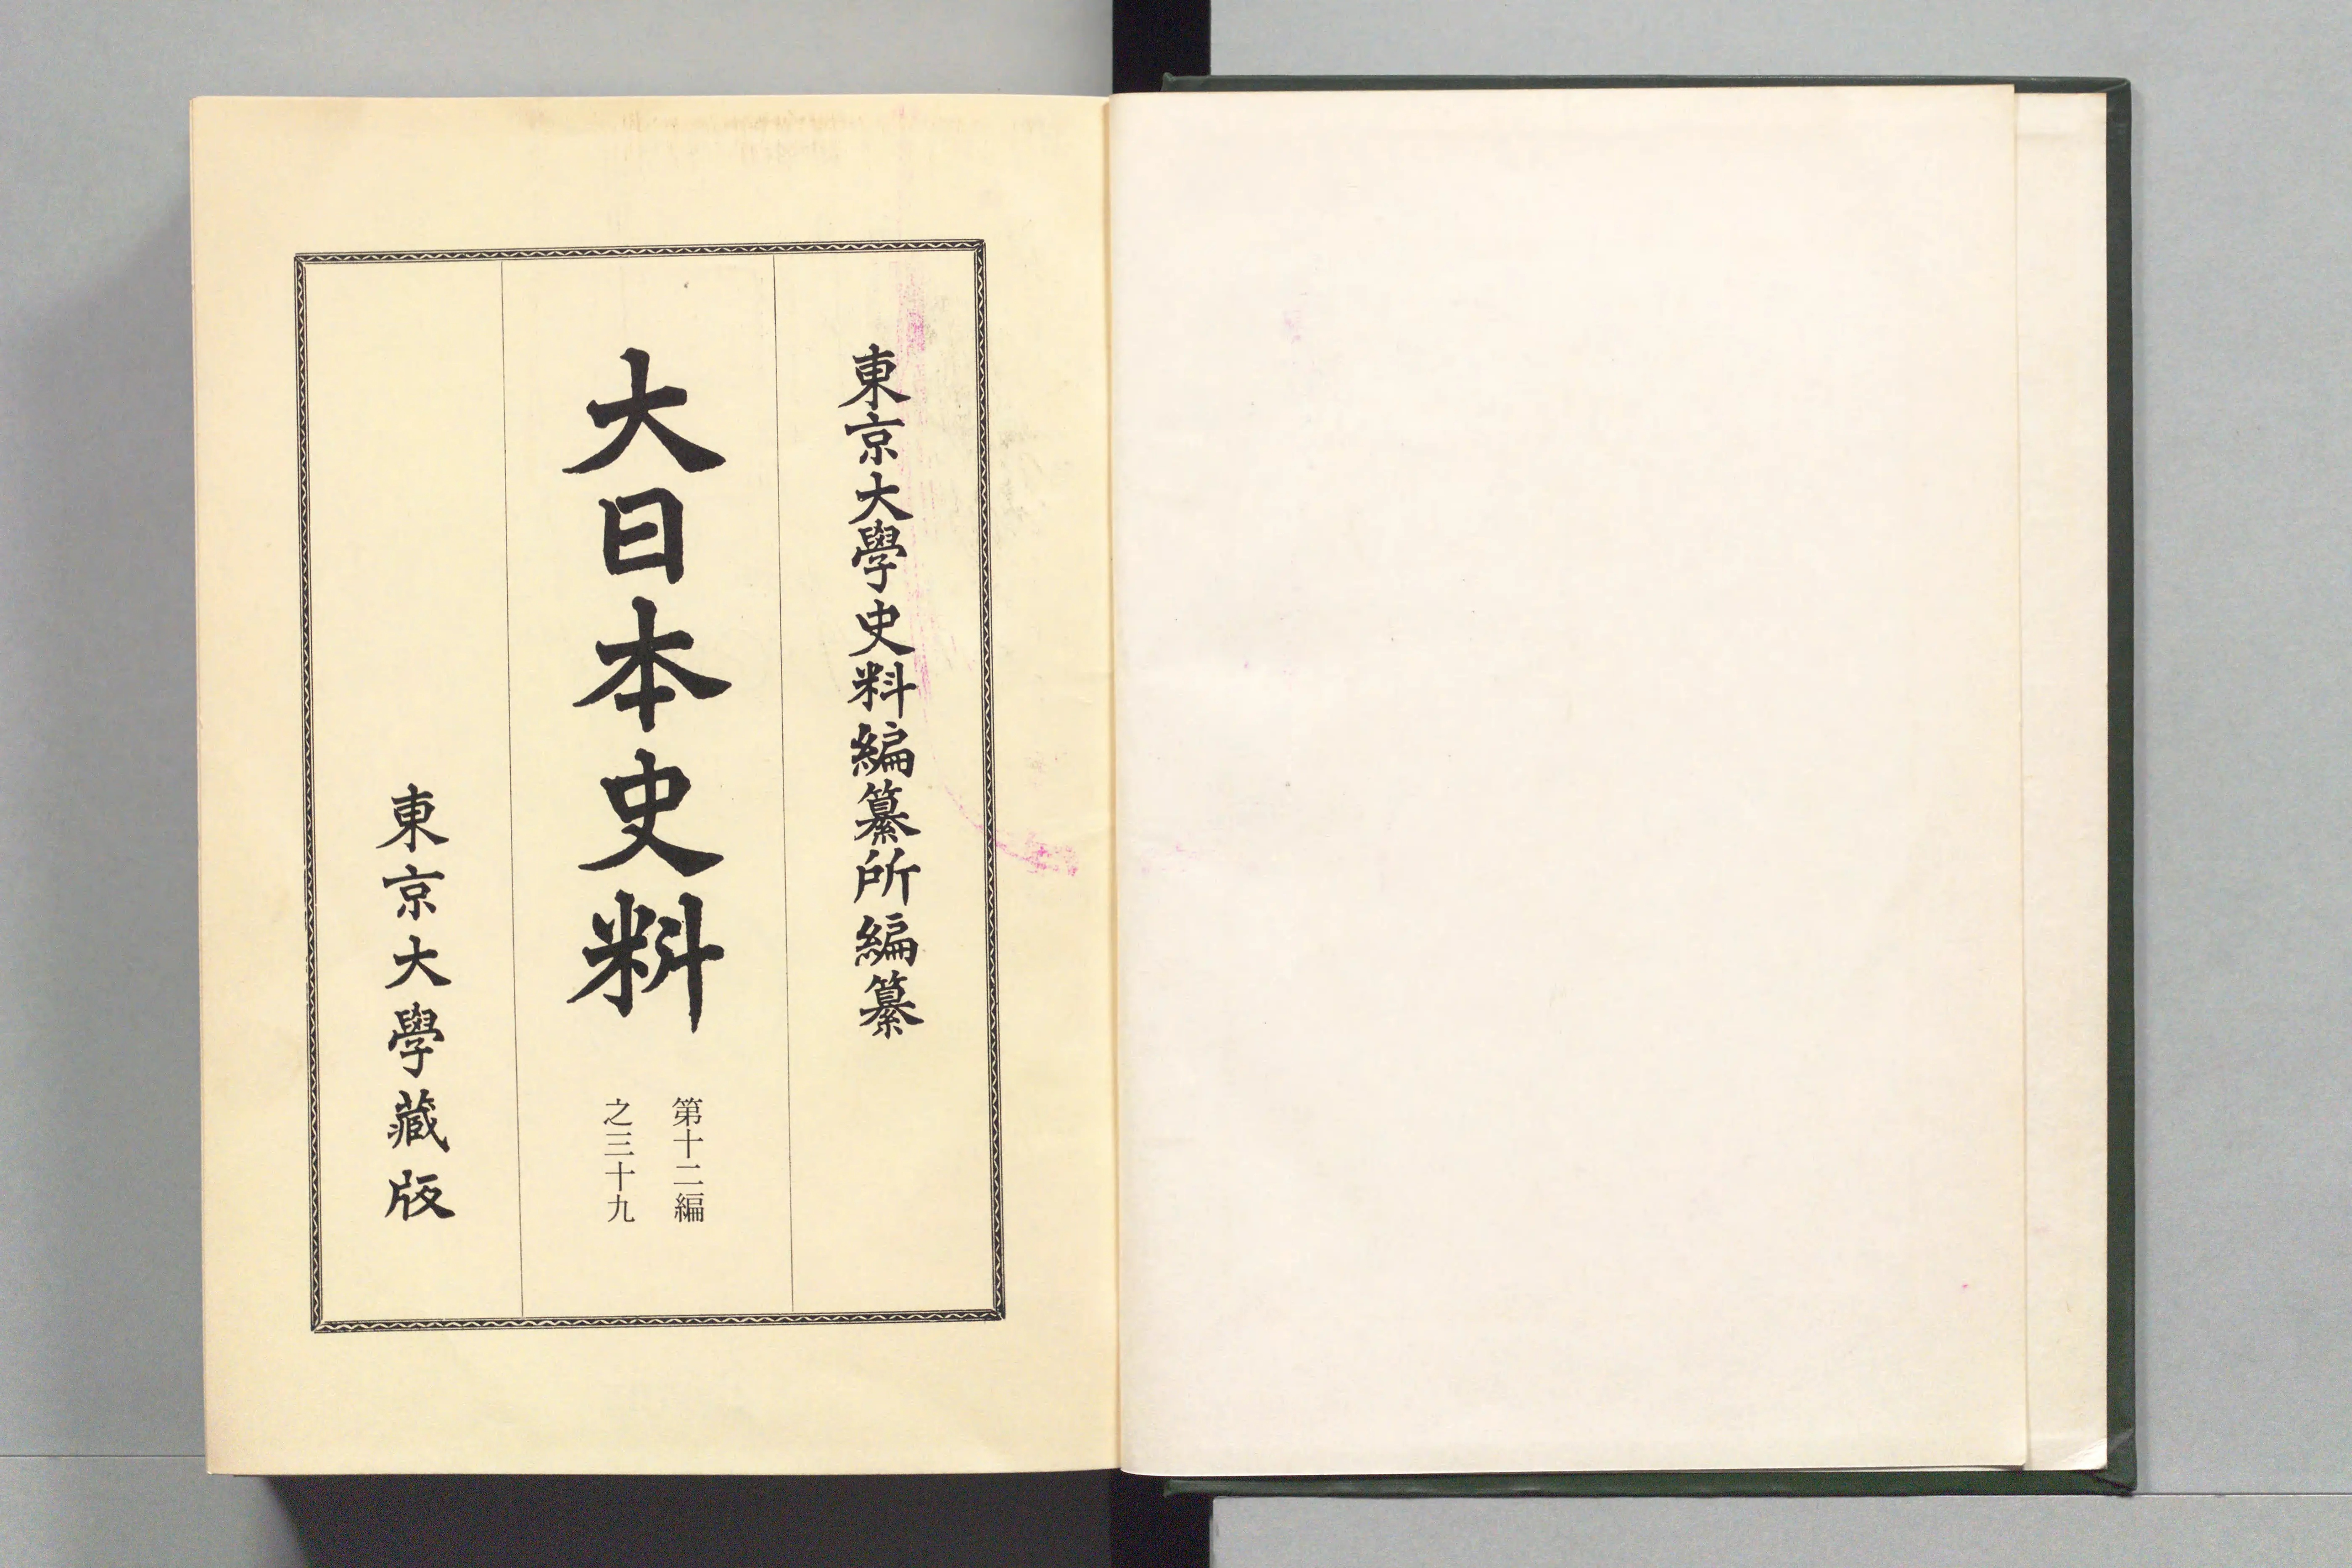 東京大學史料編纂所編纂
大日本史料
第十二編
之三十九
東京大學藏版